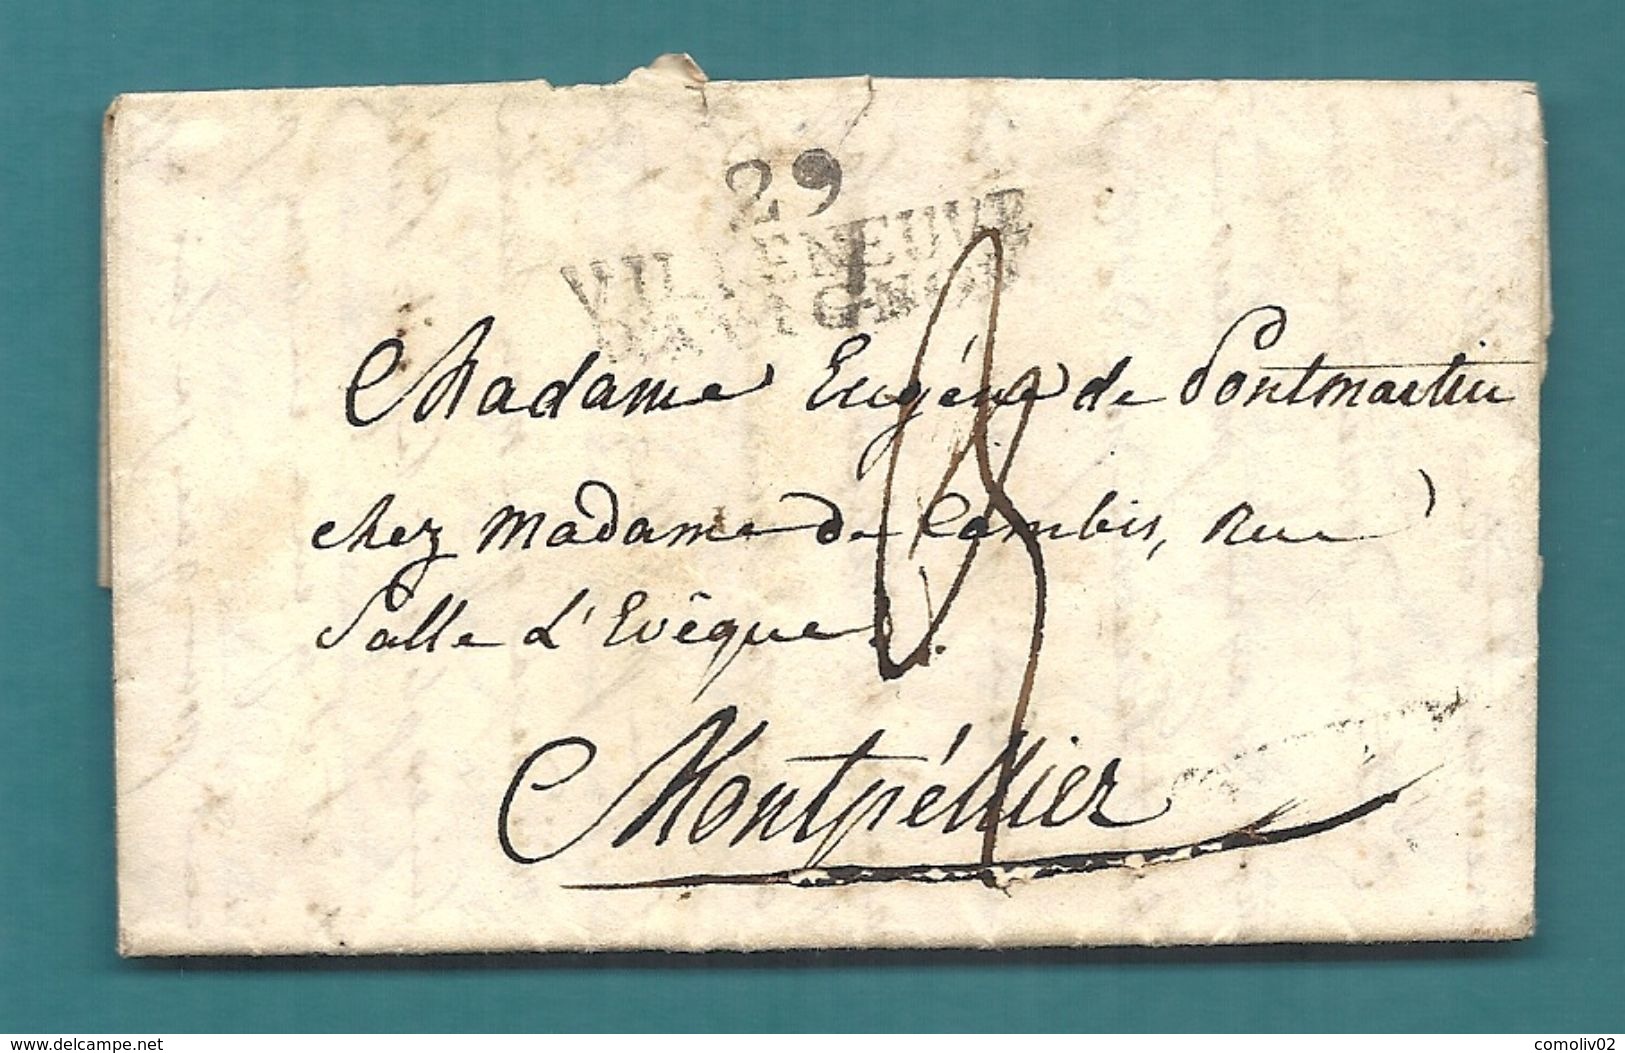 29
VILLENEUVE
D'AVIGNON
Madame Eugénie de Pontmartin
chez Madame de Cambis, Rue
Salle L'Evêque.
Montpéllier
www.delcampe.net
comoliv02